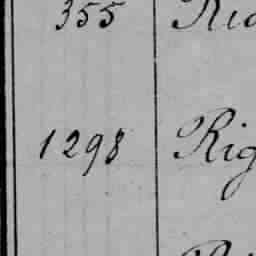 355 Ric
1298 Rig